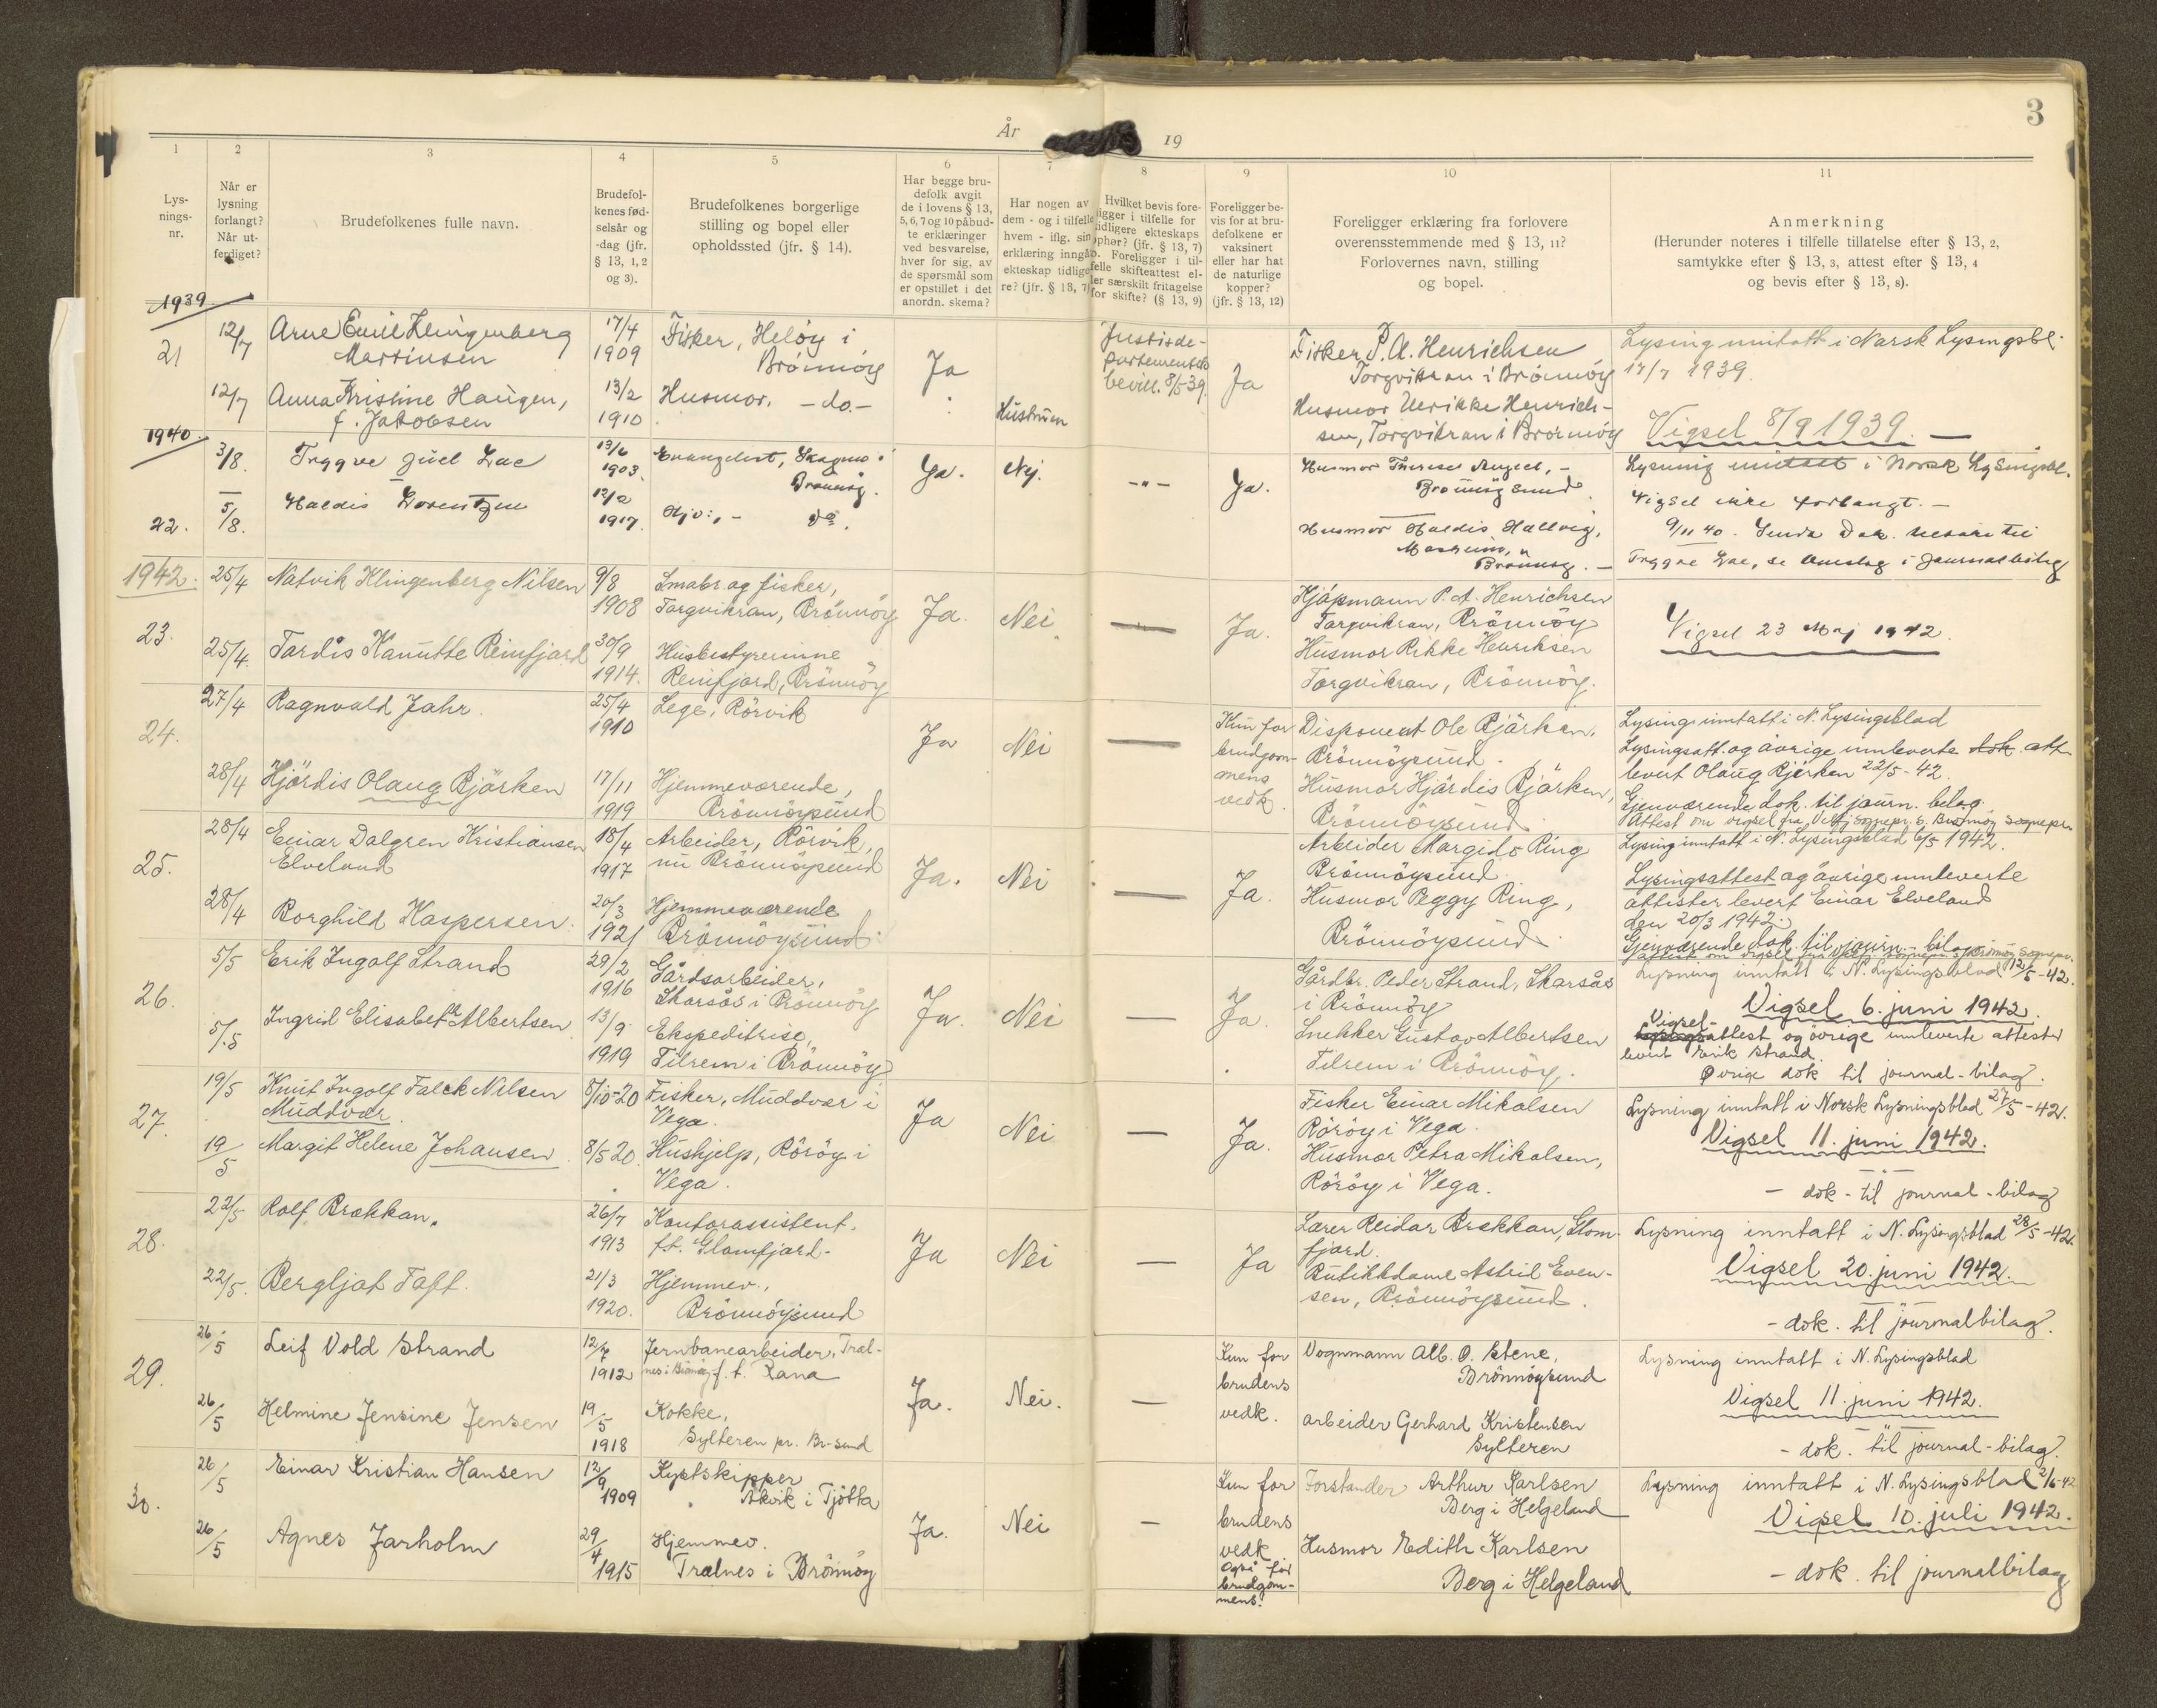 År
19
3
1
2
3
4
5
6
7
8
9
10
11
Lys-
nings-
nr.
Når er
lysning
forlangt?
Når ut-
ferdiget?
Brudefolkenes fulle navn.
Brudefol-
kenes fød-
selsår og
-dag (jfr.
§ 13, 1, 2
og 3).
Brudefolkenes borgerlige
stilling og bopel eller
opholdssted (jfr. § 14).
Har begge bru-
defolk avgit
de i lovens § 13,
5, 6, 7 og 10 påbud-
te erklæringer
ved besvarelse,
hver for sig, av
de spørsmål som
er opstillet i det
anordn. skema?
Har nogen av
dem - og i tilfelle
hvem - iflg. sin
erklæring inngåt
ekteskap tidlige-
re? (jfr. § 13, 7)
Hvilket bevis fore-
ligger i tilfelle for
tidligere ekteskaps
ophør? (jfr. § 13, 7)
b. Foreligger i til-
felle skifteattest el-
ler særskilt fritagelse
for skifte? (§ 13, 9)
Foreligger be-
vis for at bru-
defolkene er
vaksinert
eller har hat
de naturlige
kopper?
(jfr. § 13, 12)
Foreligger erklæring fra forlovere
overensstemmende med § 13, 11?
Forlovernes navn, stilling
og bopel.
Anmerkning
(Herunder noteres i tilfelle tillatelse efter § 13, 2,
samtykke efter § 13, 3, attest efter § 13, 4
og bevis efter § 13, 8).
1939
21
12/7
Arne Emil Klingenberg
Martinsen
17/4
1909
Fisker, Heløy i
Brönnöy
Ja
Justisde-
partementets
bevill. 8/5 39.
Ja
Fisker P. A. Henrichsen
Torgvikran i Brönnöy
Lysing inntatt i Norsk Lysingsbl.
17/7 1939.
12/7
Anna Kristine Haugen,
f. Jakobsen
13/2
1910
Husmor. - do. -
Hustruen
Husmor Ulrikke Henrich-
sen, Torgvikran i Brönnöy
Vigsel 8/9 1939. —
1940
22.
3/8.
Tryggve Juel Lae
13/6
1903.
Evangelist, Skagmo i
Brönnöy.
Ja.
Nej.
-"-
Ja.
Husmor Therese -
Brönnöysund
Lysning inntatt i Norsk Lysingsbl.
Vigsel ikke forlangt. -
5/8.
Haldis Lorentzen
12/2
1917.
do.
Husmor Haldis Hallvig,
Brönnöy. -
9/11 40. Sendt Dok. til
Tryggve Lae, se omslag i Journalbilag
1942.
23.
25/4
Natvik Klingenberg Nilsen
9/8
1908
Småbr. og fisker,
Torgvikran, Brönnöy
Ja.
Nei
—
Ja.
Kjöpmann P. A. Henrichsen
Torgvikran, Brönnöy
Vigsel 23 Maj 1942.
25/4.
Tordis Kanutte Reinfjord
30/9
1914.
Husbestyrerinne
Reinfjord, Brönnöy
Husmor Rikke Henriksen
Torgvikran, Brönnöy.
24.
27/4
Ragnvald Jahr.
25/4
1910
Lege, Rörvik
Ja
Nei
—
Kun for
brudgom-
mens
vedk.
Disponent Ole Bjørken,
Brönnöysund.
Lysing inntatt i N. Lysingsblad
Lysingsatt. og övrige innleverte dok. att.
levert Olaug Bjørken 22/5 - 42.
28/4
Hjördis Olaug Bjørken
17/11
1919
Hjemmeværende,
Brönnöysund
Husmor Hjördis Bjørken,
Brönnöysund
Gjenværende dok. til journ. bilag.
Attest om vigsel fra Vefsj sognepr. s. Brønnøy sognepr.
25.
28/4
Einar Dalgren Kristiansen
Elveland
18/4
1917
Arbeider, Rörvik,
nu Brönnöysund
Ja.
Nei
—
Ja.
Arbeider Margido Ring
Brönnöysund
Lysing inntatt i N. Lysingsblad 6/5 1942.
Lysingsattest og övrige innleverte
28/4
Borghild Kaspersen.
20/3
1921
Hjemmeværende
Brönnöysund.
Husmor Peggy Ring,
Brönnöysund
attester levert Einar Elveland
den 20/3 1942.
Gjenværende dok. til journ.- bilag.
26.
5/5
Erik Ingolf Strand
29/2
1916
Gårdsarbeider,
Skarsås i Brönnöy
Ja.
Nei
—
Ja.
Gårdbr. Peder Strand, Skarsås
i Brönnöy
Lysning inntatt i N. Lysingsblad 12/5 - 42.
Vigsel 6. juni 1942.
5/5
Ingrid Elisabeth Albertsen
13/9
1919
Ekspeditrise,
Tilrem i Brönnöy
Snekker Gustav Albertsen
Tilrem i Brönnöy.
Vigsel-
attest og övrige innleverte attester
levert Erik Strand.
Øvrige dok til journal-bilag.
27.
19/5
Knut Ingolf Falck Nilsen
Muddvær
8/10-20
Fisker, Muddvær i
Vega.
Ja
Nei
—
Ja.
Fisker Einar Mikalsen
Röröy i Vega.
Lysning inntatt i Norsk Lysningsblad 27/5 - 42.
Vigsel 11. juni 1942.
19/5
Margit Helene Johansen
8/5 20.
Hushjelp, Röröy i
Vega.
Husmor Petra Mikalsen,
Röröy i Vega.
- dok - til journal - bilag
28.
22/5
Rolf Brekkan.
26/7
1913
Kontorassistent,
f.t. Glomfjord-
Ja
Nei
—
Ja
Lærer Reidar Brekkan, Glom-
fjord.
Lysning inntatt i N. Lysingsblad 28/5 - 42.
Vigsel 20. juni 1942.
22/5.
Bergljot Toft.
21/3
1920.
Hjemmev.,
Brönnöysund
Butikkdame Astrid Even-
sen, Brönnöysund.
- dok. til journalbilag.
29.
26/5
Leif Vold Strand
12/7
1912
Jernbanearbeider, Træl-
nes i Brönnöy f. t. Rana
Ja.
Nei.
—
Kun for
brudens
vedk.
Vognmann Alb. O. Stene,
Brönnöysund
Lysning inntatt i N. Lysingsblad
Vigsel 11. juni 1942.
26/5
Helmine Jensine Jensen
19/5
1918
Kokke,
Sylteren pr. Br-sund
arbeider Gerhard Kristensen
Sylteren
- dok. til journal-bilag.
30.
26/5
Einar Kristian Hansen
12/9
1909
Kystskipper
Åkvik i Tjötta
Ja.
Nei
—
Kun for
brudens
vedk
Også for
brudgom-
mens.
Forstander Arthur Karlsen
Berg i Helgeland
Lysning inntatt i N. Lysingsblad 2/6-42
Vigsel 10. juli 1942.
26/5
Agnes Jarholm
29/4
1915
Hjemmev.
Trælnes i Brönnöy
Husmor Edith Karlsen
Berg i Helgeland
- dok. til journalbilag